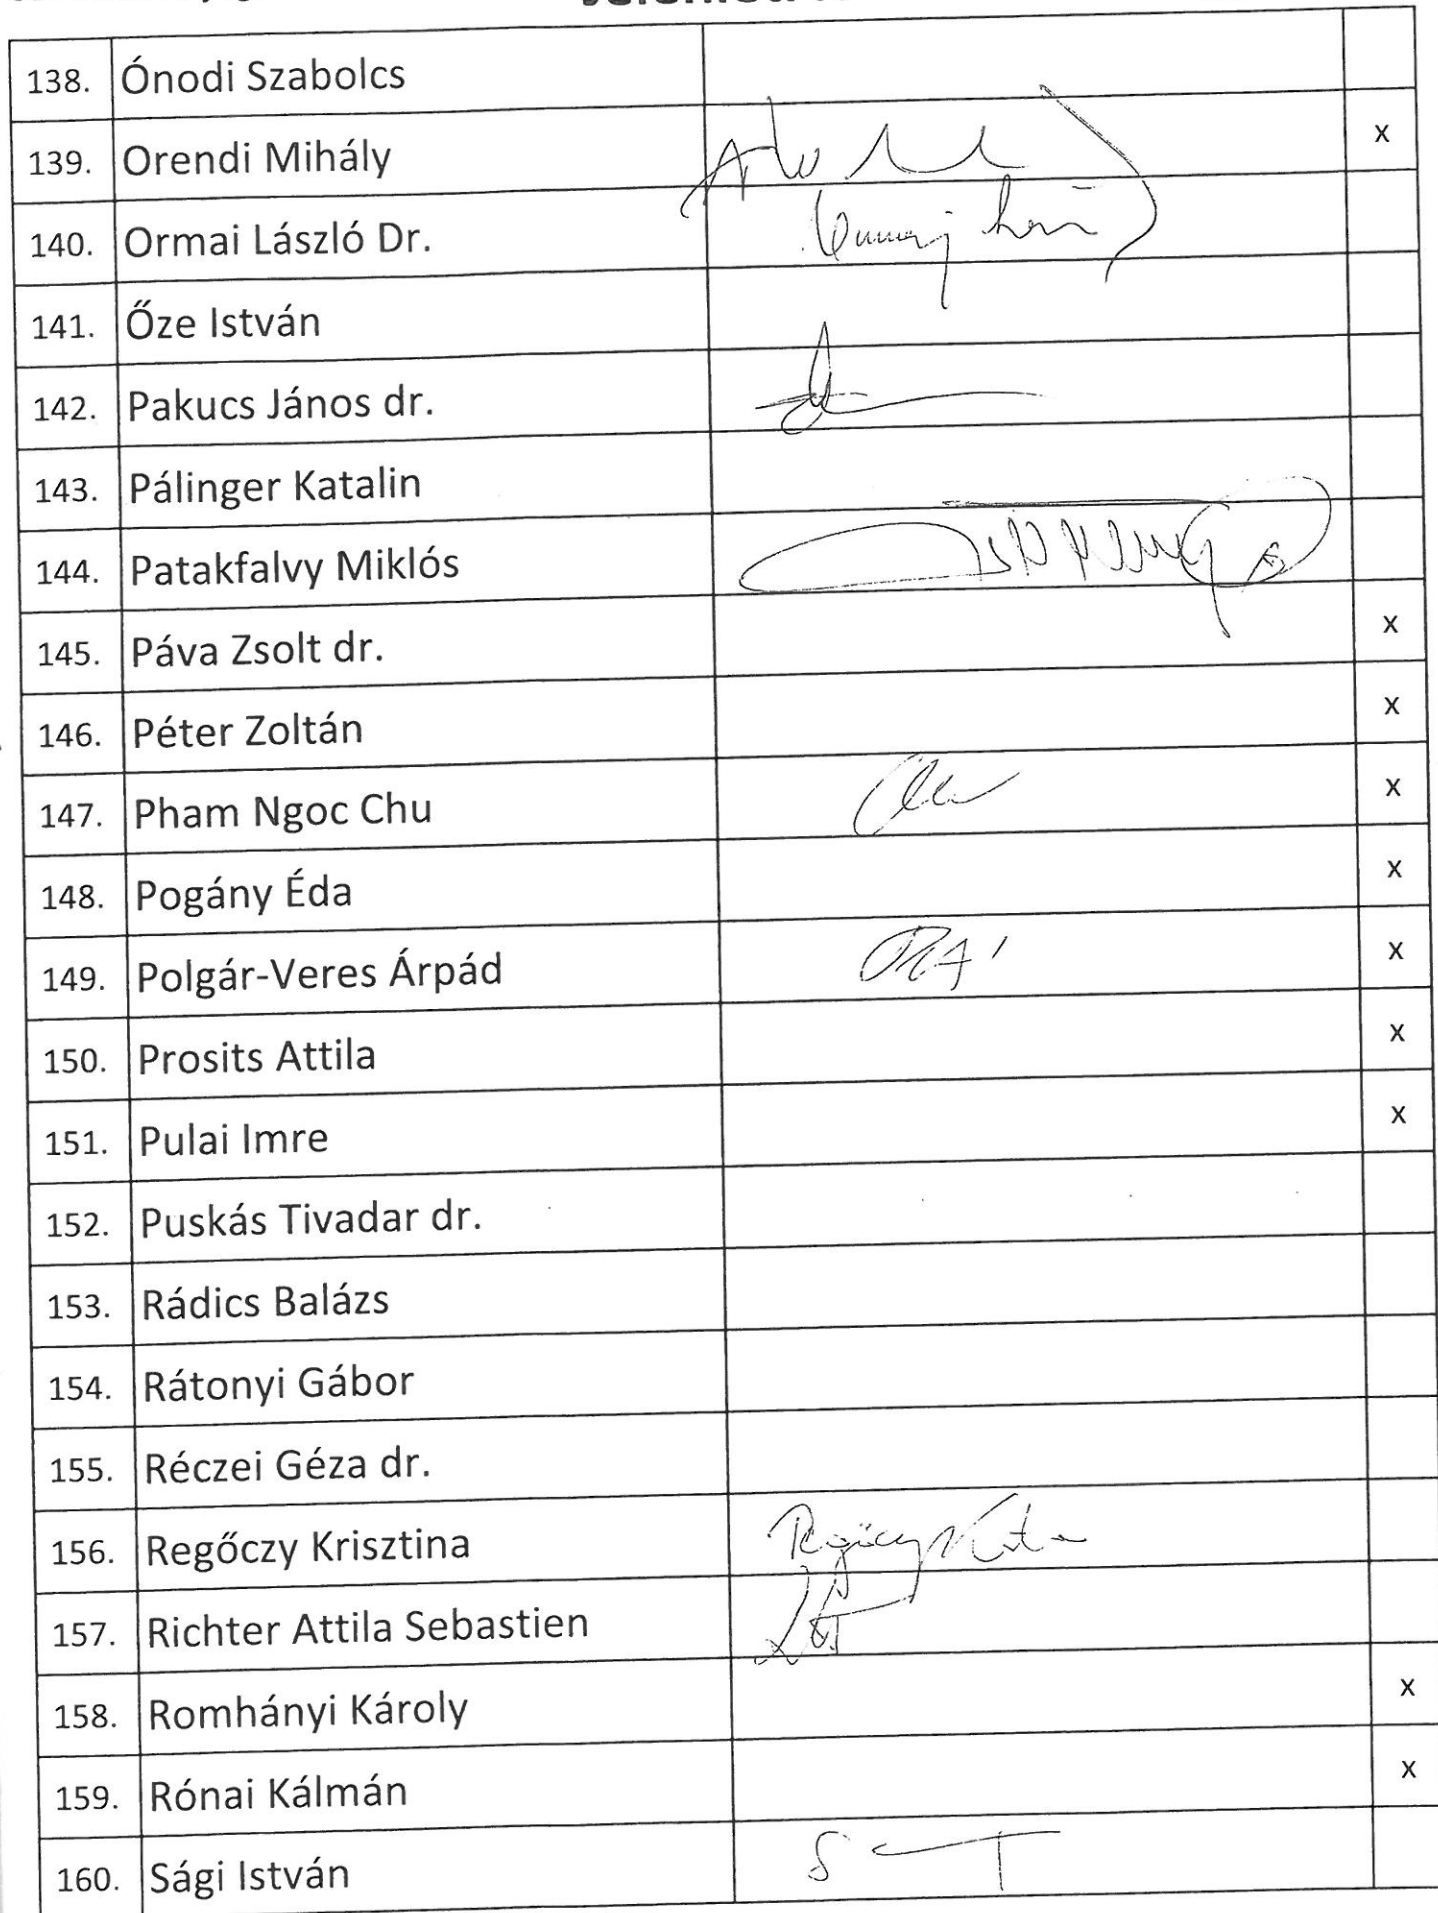 138. Ónodi Szabolcs
139. Orendi Mihály x
140. Ormai László Dr.
141. Őze István
142. Pakucs János dr.
143. Pálinger Katalin
144. Patakfalvy Miklós
145. Páva Zsolt dr. x
146. Péter Zoltán x
147. Pham Ngoc Chu x
148. Pogány Éda x
149. Polgár-Veres Árpád x
150. Prosits Attila x
151. Pulai Imre x
152. Puskás Tivadar dr.
153. Rádics Balázs
154. Rátonyi Gábor
155. Réczei Géza dr.
156. Regőczy Krisztina
157. Richter Attila Sebastien
158. Romhányi Károly x
159. Rónai Kálmán x
160. Sági István